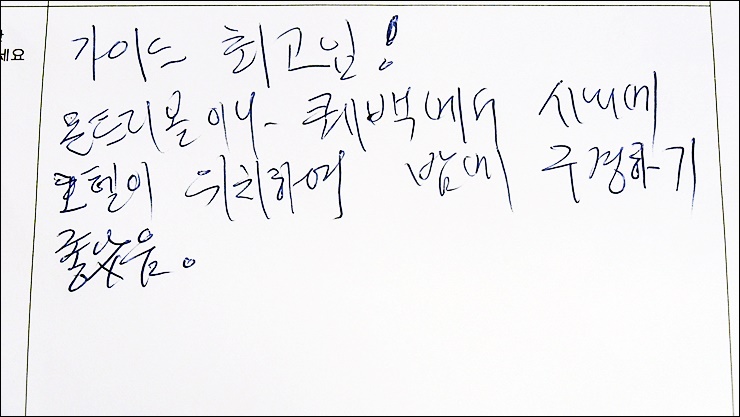 세요
가이드 최고임!
몬트리볼이나 퀘백에서 시내에
호텔이 위치하여 밤에 구경하기
좋았음.